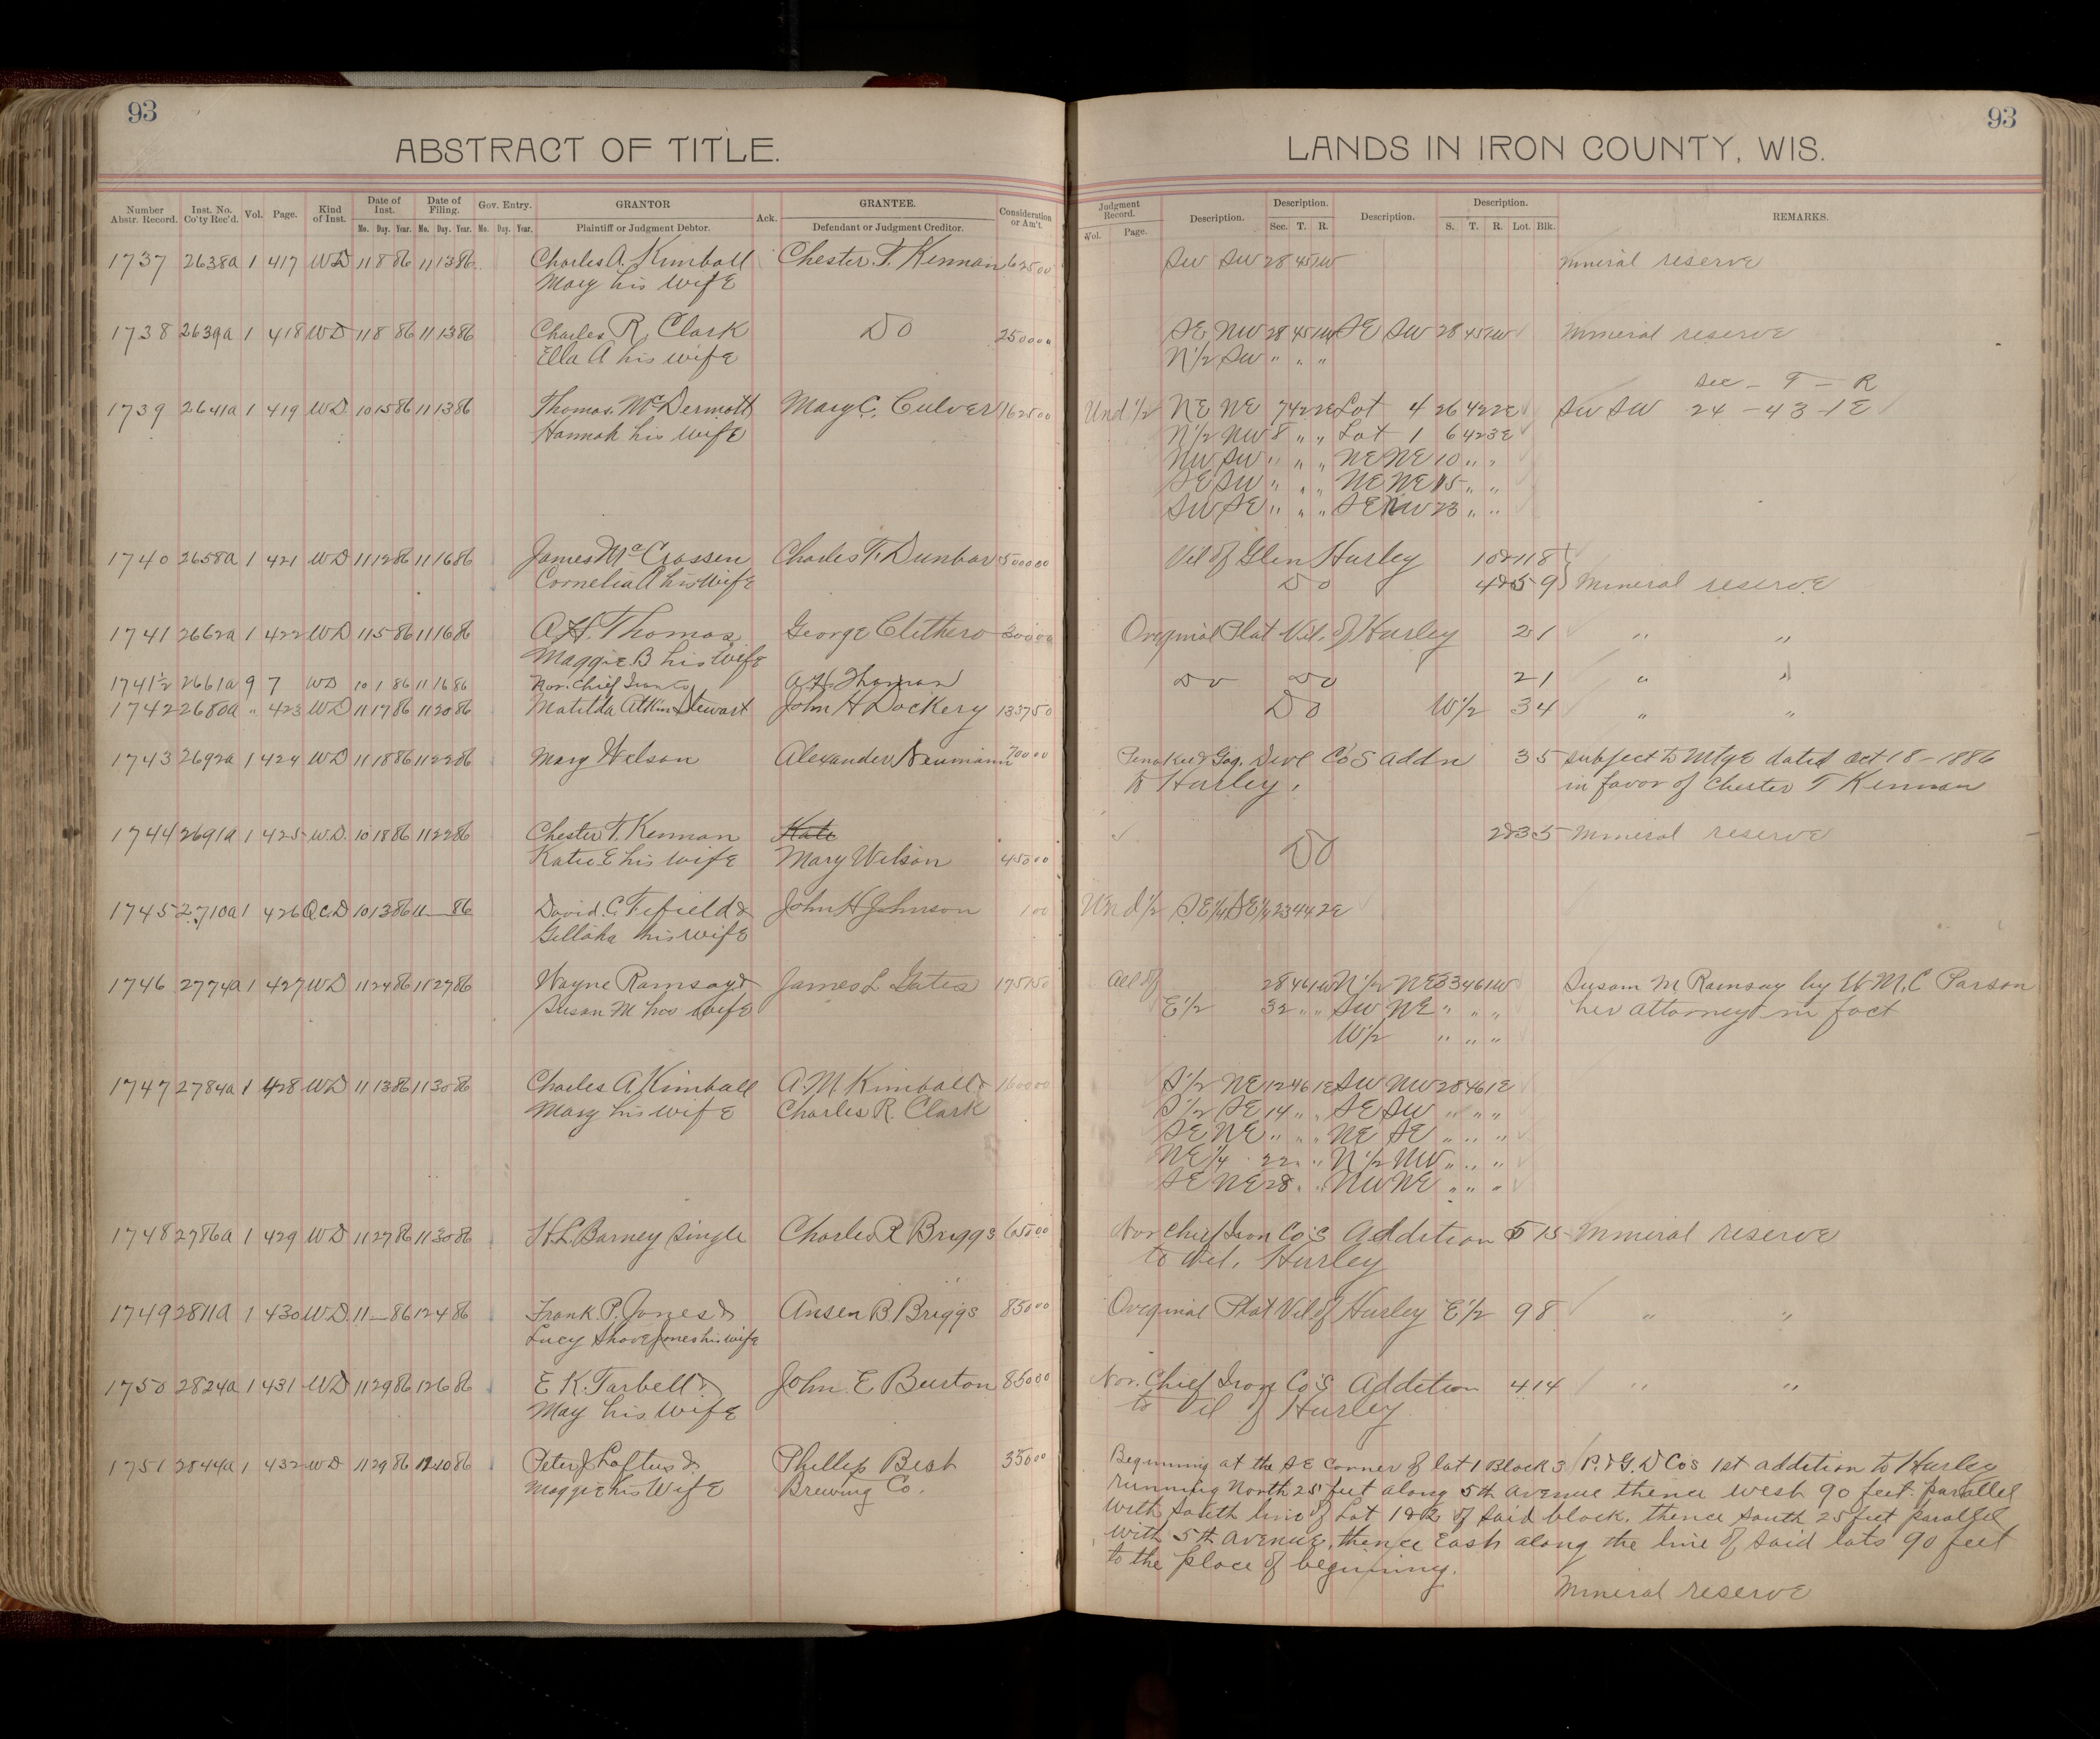 93
ABSTRACT OF TITLE.
Number Abstr. Record. Inst. No. Co'ty Rec'd. Vol. Page. Kind of Inst. Date of Inst. Mo. Day. Year. Date of Filing. Mo. Day. Year. Gov. Entry. Mo. Day. Year. GRANTOR Plaintiff or Judgment Debtor. Ack. GRANTEE. Defendant or Judgment Creditor. Consideration or Am't.
1737 2638a 1 417 WD 11 8 86 11 13 86 Charles A. Kimball Chester T. Kennan 625 00
Mary his wife
1738 2639a 1 418 WD 11 8 86 11 13 86 Charles R. Clark Do 2500 00
Ella A his wife
1739 2641a 1 419 WD 10 15 86 11 13 86 Thomas McDermott Mary C. Culver 1625 00
Hannah his wife
1740 2658a 1 421 WD 11 12 86 11 16 86 James McCrossen Charles F. Dunbar 5000 00
Cornelia A his wife
1741 2662a 1 422 WD 11 5 86 11 16 86 A.H. Thomas George Clithero 300 00
Maggie B his wife
1741½ 2661a 9 7 WD 10 1 86 11 16 86 Nor. Chief Iron Co A.H. Thomas
1742 2680a " 423 WD 11 17 86 11 20 86 Matilda Atkin Stewart John H Dockery 1337 50
1743 2692a 1 424 WD 11 18 86 11 22 86 Mary Wilson Alexander Neumann 700 00
1744 2691a 1 425 WD. 10 18 86 11 22 86 Chester T. Kennan Kate
Katie E his wife Mary Wilson 450 00
1745 2710a 1 426 Q.C.D 10 13 86 11 — 86 David C. Fifield & John H Johnson 1 00
his wife
1746 2774a 1 427 WD 11 24 86 11 27 86 Wayne Ramsay & James L. Gates 1751 50
Susan M his wife
1747 2784a 1 428 WD 11 13 86 11 30 86 Charles A. Kimball A.M. Kimball & 1600 00
Mary his wife Charles R. Clark
1748 2786a 1 429 WD 11 27 86 11 30 86 H.L. Barney single Charles R Briggs 650 00
1749 2811a 1 430 W.D. 11 — 86 12 4 86 Frank P. Jones & Ansen B. Briggs 850 00
Lucy Shove Jones his wife
1750 2824a 1 431 WD 11 29 86 12 6 86 E K. Tarbell & John E Burton 850 00
May his wife
1751 2844a 1 432 WD 11 29 86 12 10 86 Peter J Loftus & Phillip Best 350 00
Maggie his wife Brewing Co.
93
LANDS IN IRON COUNTY, WIS.
Judgment Record. Vol. Page. Description. Description. Sec. T. R. Description. Description. S. T. R. Lot. Blk. REMARKS.
SW SW 28 45 1W mineral reserve
SE NW 28 45 1W SE SW 28 45 1W mineral reserve
N½ SW " " "
Sec - T - R
Und ½ NE NE 7 42 2E Lot 4 26 42 2E SW SW 24 - 43 - 1E
N½ NW 8 " " Lot 1 6 42 3E
NW SW " " " NE NE 10 " "
SE SW " " " NE NE 15 " "
SW SE " " " SE NW 23 " "
Vil of Glen Hurley 10 & 11 8
Do 4 & 5 9 mineral reserve
Original Plat Vil. of Hurley 2 1 " "
Do Do 2 1 " "
Do W½ 3 4 " "
Penokee & Gog. Devl Co's addn 3 5 subject to Mtge dated Oct 18-1886
to Hurley. in favor of Chester T Kennan
Do 2 & 3 5 mineral reserve
Und ½ SE¼ SE¼ 23 44 2E
All of 28 46 1W N½ NE 33 46 1W Susan M Ramsay by W.M.C Parson
E½ 32 " " SW NE " " " her attorney in fact
W½ " " "
S½ NE 12 46 1E SW NW 28 46 1E
S½ SE 14 " " SE SW " " "
SE NE " " " NE SE " " "
NE¼ 22 " " N½ NW " " "
SE NE 28 " " NW NE " " "
Nor Chief Iron Co's Addition 5 15 mineral reserve
to Vil. Hurley
Original Plat Vil of Hurley E½ 9 8 " "
Nor. Chief Iron Co's Addition 4 14 " "
to Vil of Hurley
Beginning at the SE corner of lot 1 Block 3 P. & G. D Co's 1st addition to Hurley
running North 25 feet along 5th avenue thence west 90 feet parallel
with south line of Lot 1 & 2 of said block. thence south 25 feet parallel
with 5th avenue, thence East along the line of said lots 90 feet
to the place of beginning.
mineral reserve